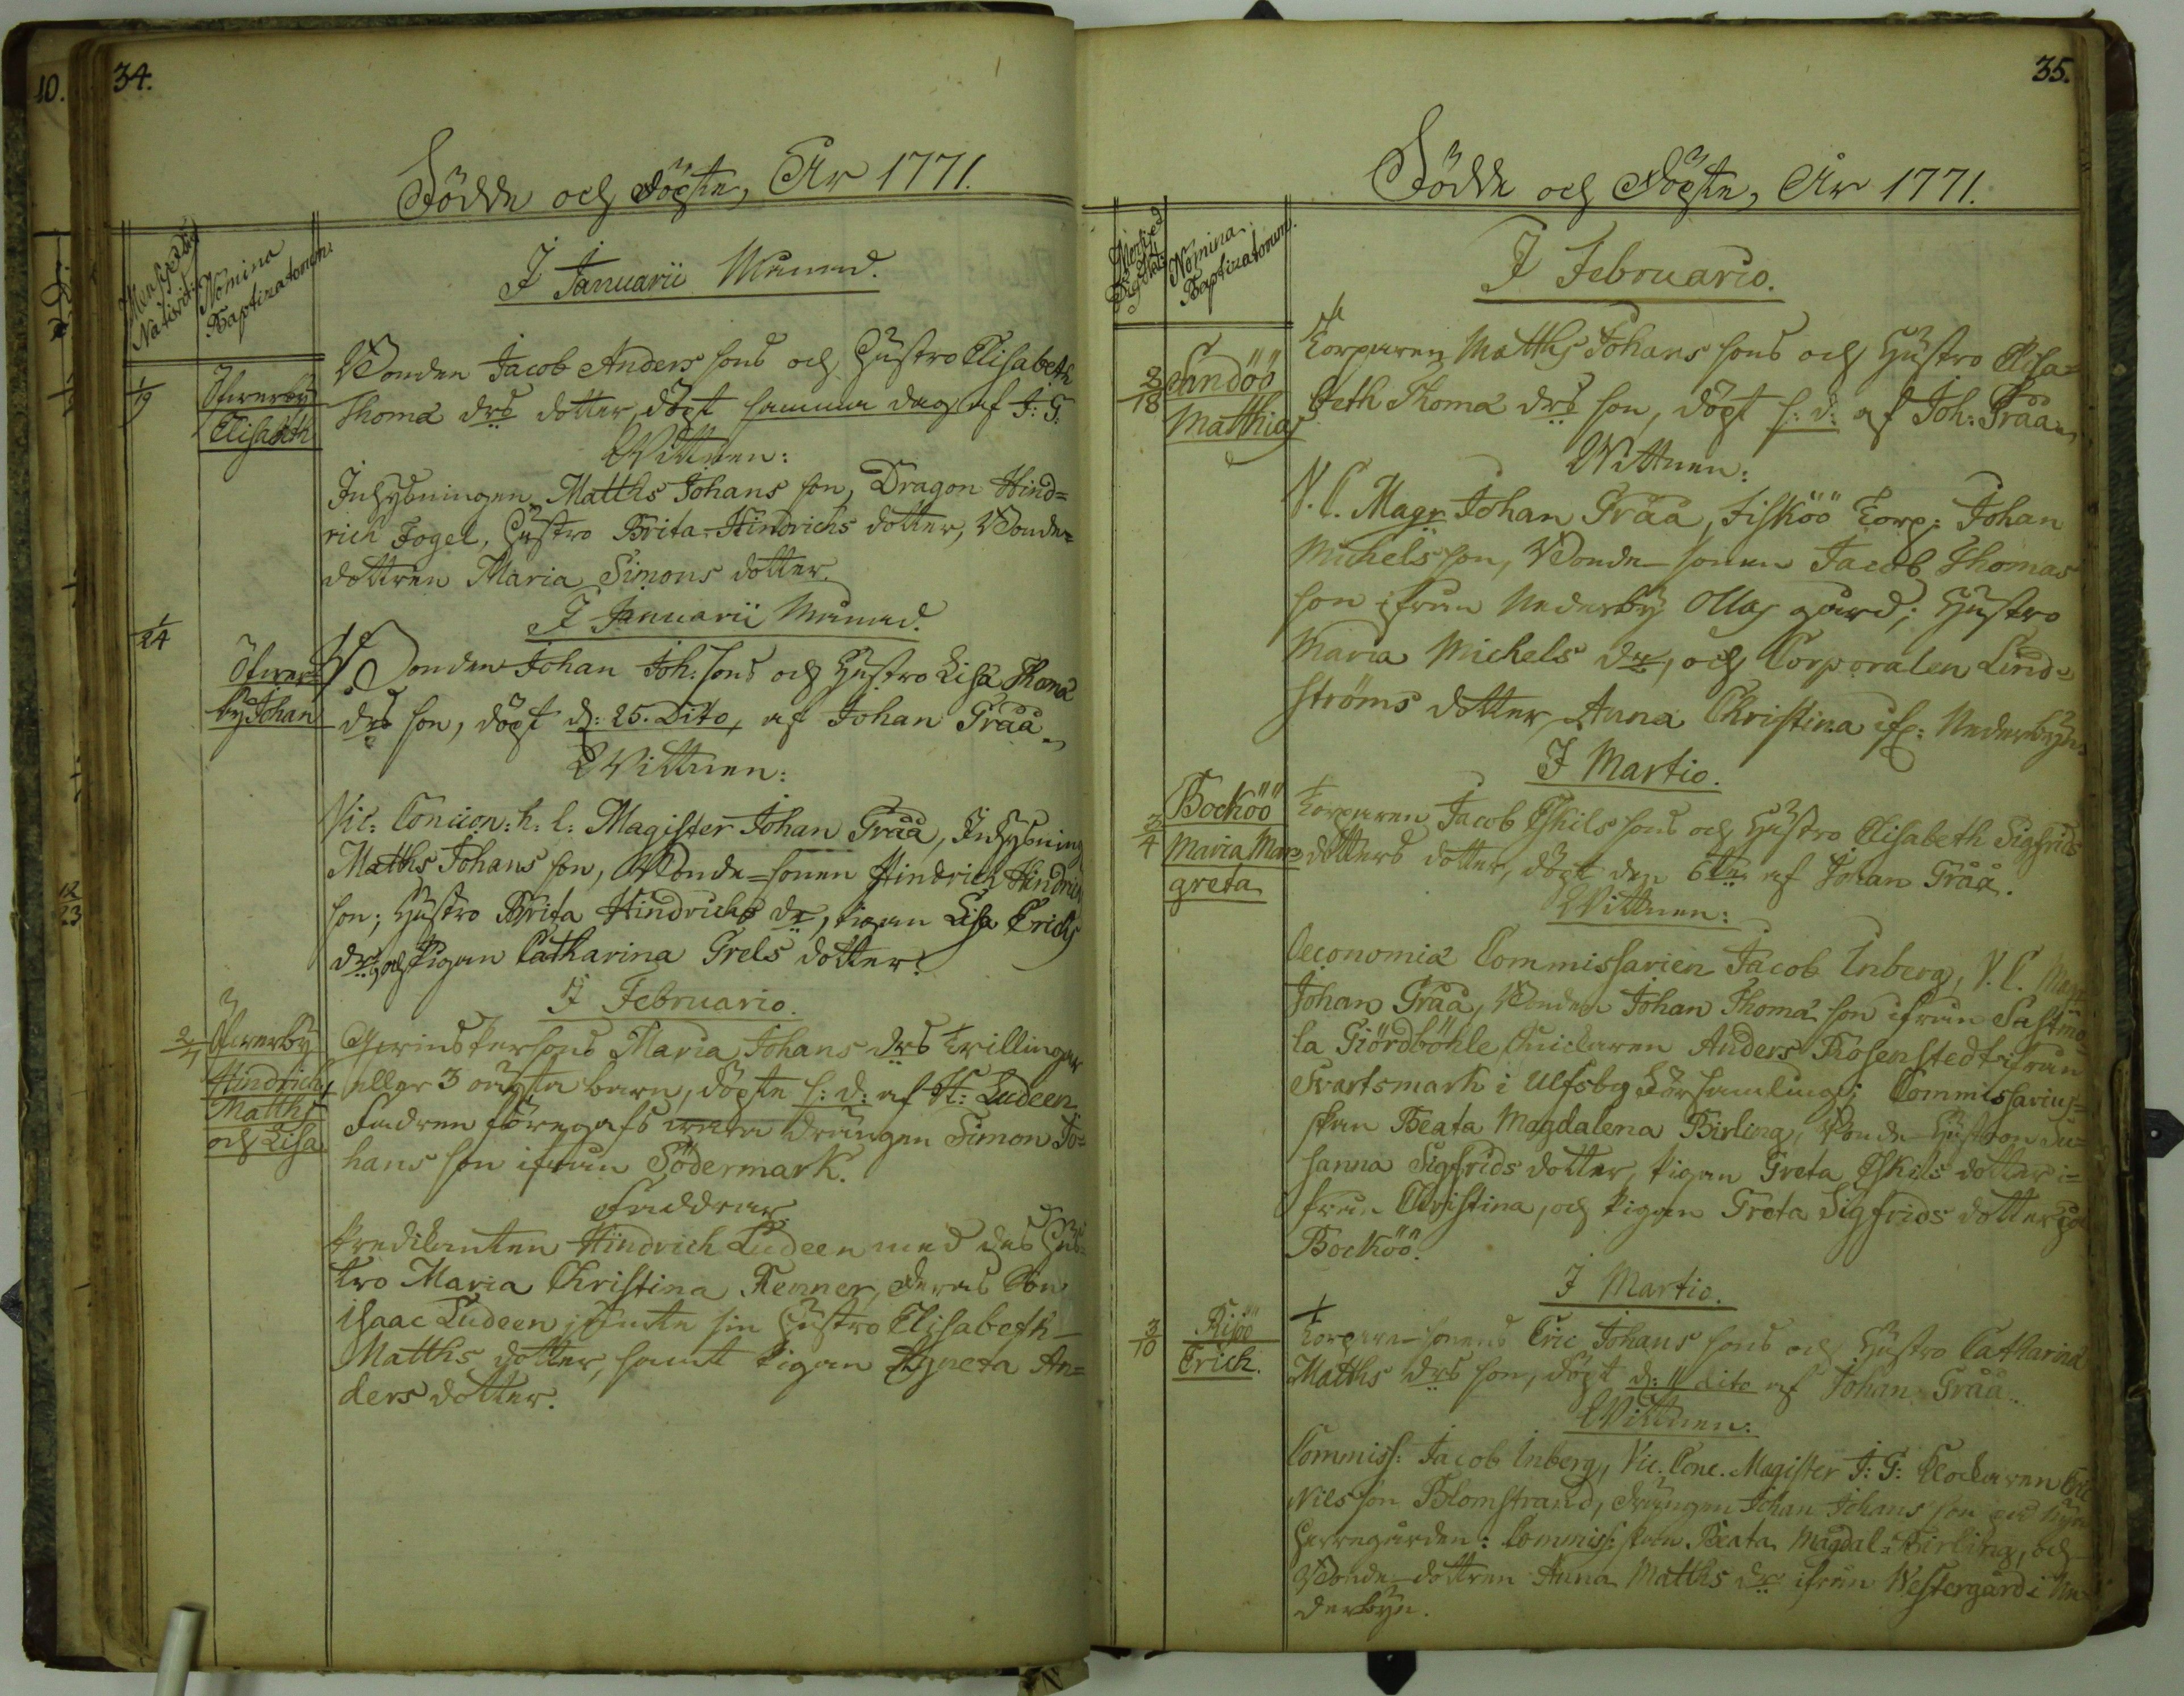 10.
34.
Födde och döpte, År 1771.
Mens. et Dies Nativit.
Nomina Baptizatorum
I Januarii Månad.
1/19
Öfwerby
Elisabeth
Bonden Jacob Anders sons och Hustro Elisabeth
Thomæ drs dotter, döpt samma dag af J: G:
Wittnen:
Inhysningen Matths Johans son, Dragon Hind=
rich Fogel, Hustro Brita Hindrichs dotter, Bonde=
dottren Maria Simons dotter.
I Januarii Månad.
1/24
Öfwer=
by Johan
Bonden Johan Joh: sons och Hustro Lisa Thomæ
drs son, döpt d: 25. Dito, af Johan Gråå
Wittnen:
Vic: Concion: h: l: Magister Johan Gråå, Inhysning
Matths Johans son, Bonde=sonen Hindrich Hindrich
son; Hustro Brita Hindrichs dr, pigan Lisa Erichs
dr, och Pigan Catharina Grels dotter.
I Februario.
2/7
Öfwerby
Hindrich,
Matths
och Lisa
Qwinspersons Maria Johans drs Trillingar
eller 3 oägta barn, döpte s: d: af H: Ludeen
Fadren föregafs wara Drängen Simon Jo=
hans son ifrån Södermark.
Faddrar
Predikanten Hindrich Ludeen med des Hus=
tro Maria Christina Renner, deras Son
Isaac Ludeen jämte sin Hustro Elisabeth
Matths dotter, samt Pigan Agneta An=
ders dotter.
12
23
35.
Födde och Döpte, År 1771.
Nomina Baptizatorum.
I Februario.
2/18
Sandöö
Matthias
Torparen Matths Johans sons och Hustro Elisa=
beth Thomæ drs son, döpt s: d: af Joh: Gråå
Wittnen:
V. C. Magr Johan Gråå, Fisköö Torp: Johan
Michels son, Bonde-sonen Jacob Thomas
son ifrån Nederby Ollas gård; Hustro
Maria Michels dr, och Corporalen Lind=
ströms dotter Anna Christina ifr: Nederbyn
I Martio.
3/4
Bocköö
Maria Mar=
greta
Torparen Jacob Eskils sons och Hustro Elisabeth Sigfrids
dotters dotter, döpt den 6te af Johan Gråå.
Wittnen:
Oeconomiæ Commissarien Jacob Inberg, V. C. Magr
Johan Gråå, Bonden Johan Thomæ son ifrån Sastmo=
la Giördböhle Anders Rosenstedt ifrån
Svartsmark i Ulfsby Församling; Commissarius=
skan Beata Magdalena Birling, Bonde-Hustron Su=
sanna Sigfrids dotter, pigan Greta Eskils dotter i=
från Christina, och Pigan Greta Sigfrids dotter på
Bocköö.
I Martio.
3/10
Risöö
Erich.
Torpare-sonens Eric Johans sons och Hustro Catharina
Matths drs son, döpt d: 11 dito af Johan Gråå
Wittnen:
Commiss: Jacob Inberg, Vic. Conc. Magister J: G: Klockaren Eric
Nilsson Blomstrand, drängen Johan Johans son
Herregården: Commiss:skan Beata Magdal: Birling, och
Bonde-dottren Anna Matths dr ifrån Westergård i Ne=
derbyn.